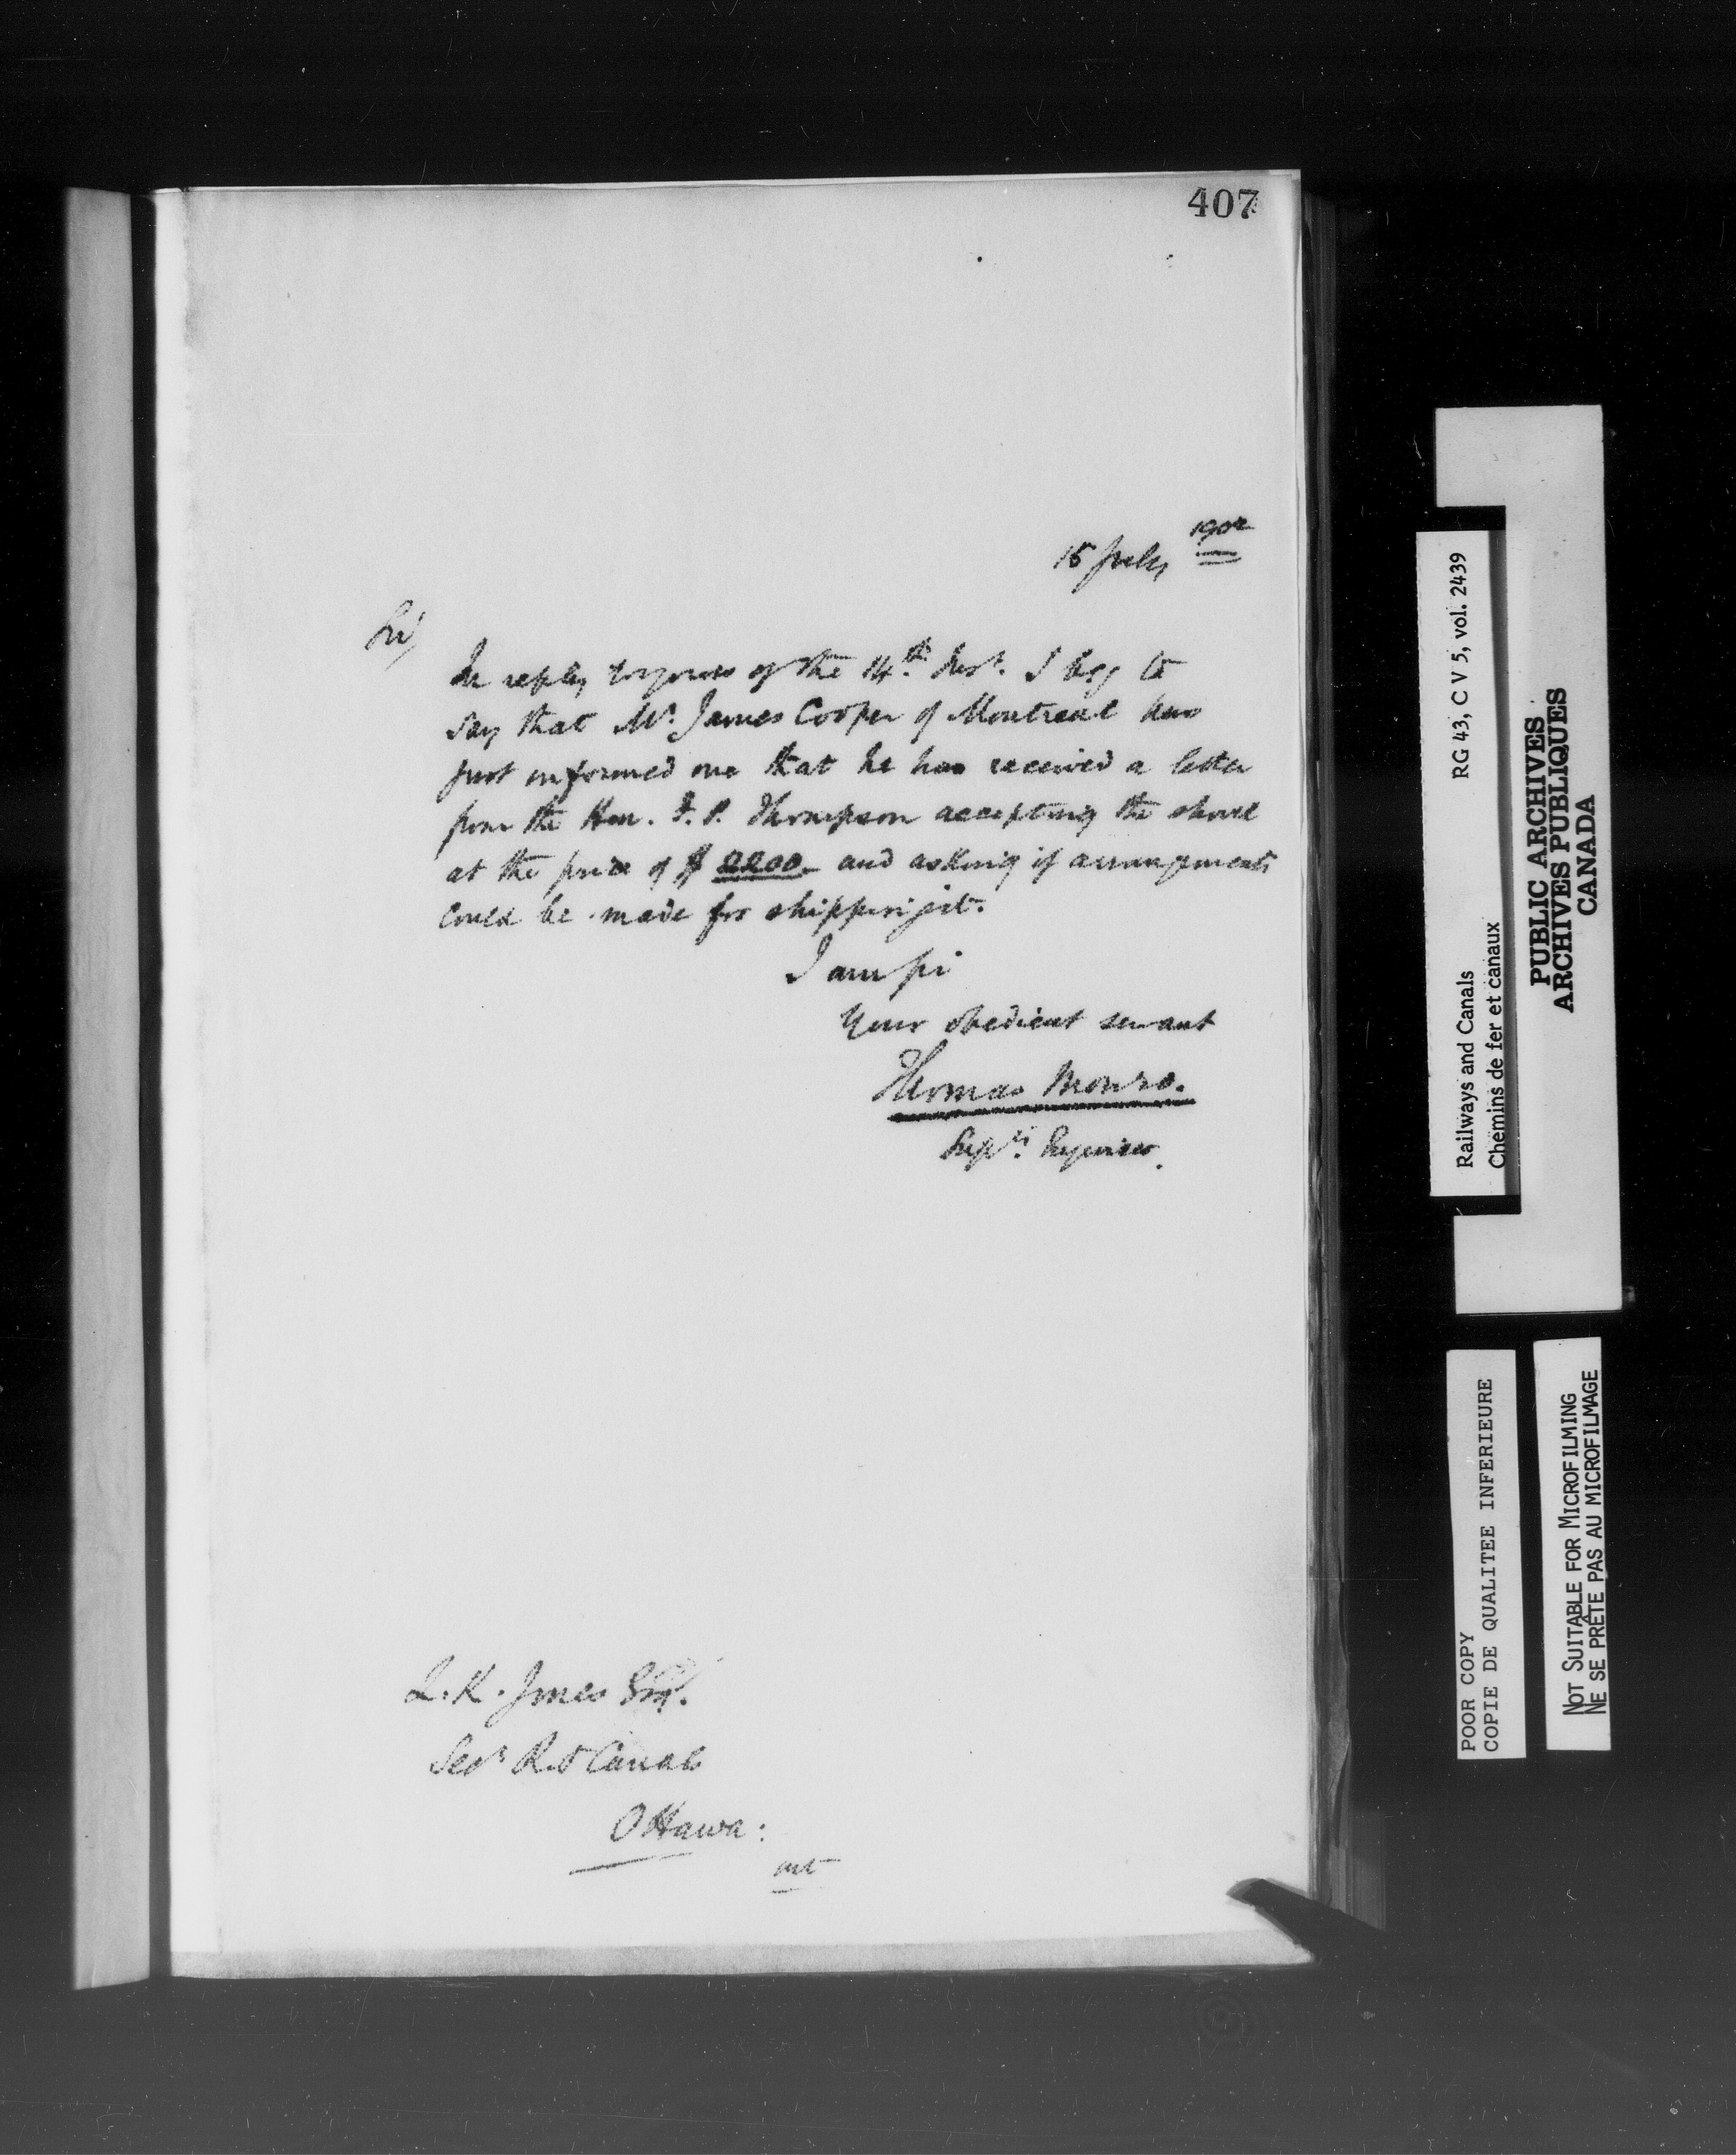 407
15 July 1902
Sir,
In reply to yours of the 14th. Inst. I beg to
say that Mr. James Cooper of Montreal has
just informed me that he has received a letter
from the Hon. F. P. Thompson accepting the shovel
at the price of $ 2200. and asking if arrangements
could be made for shipping it.
I am Sir
Your obedient servant
Thomas Monro.
Supt. Engineer.
L. K. Jones Esq.
Secy R. & Canals
Ottawa:
Railways and Canals RG 43, C V 5, vol. 2439
Chemins de fer et canaux
PUBLIC ARCHIVES
ARCHIVES PUBLIQUES
CANADA
POOR COPY
COPIE DE QUALITEE INFERIEURE
NOT SUITABLE FOR MICROFILMING
NE SE PRÊTE PAS AU MICROFILMAGE